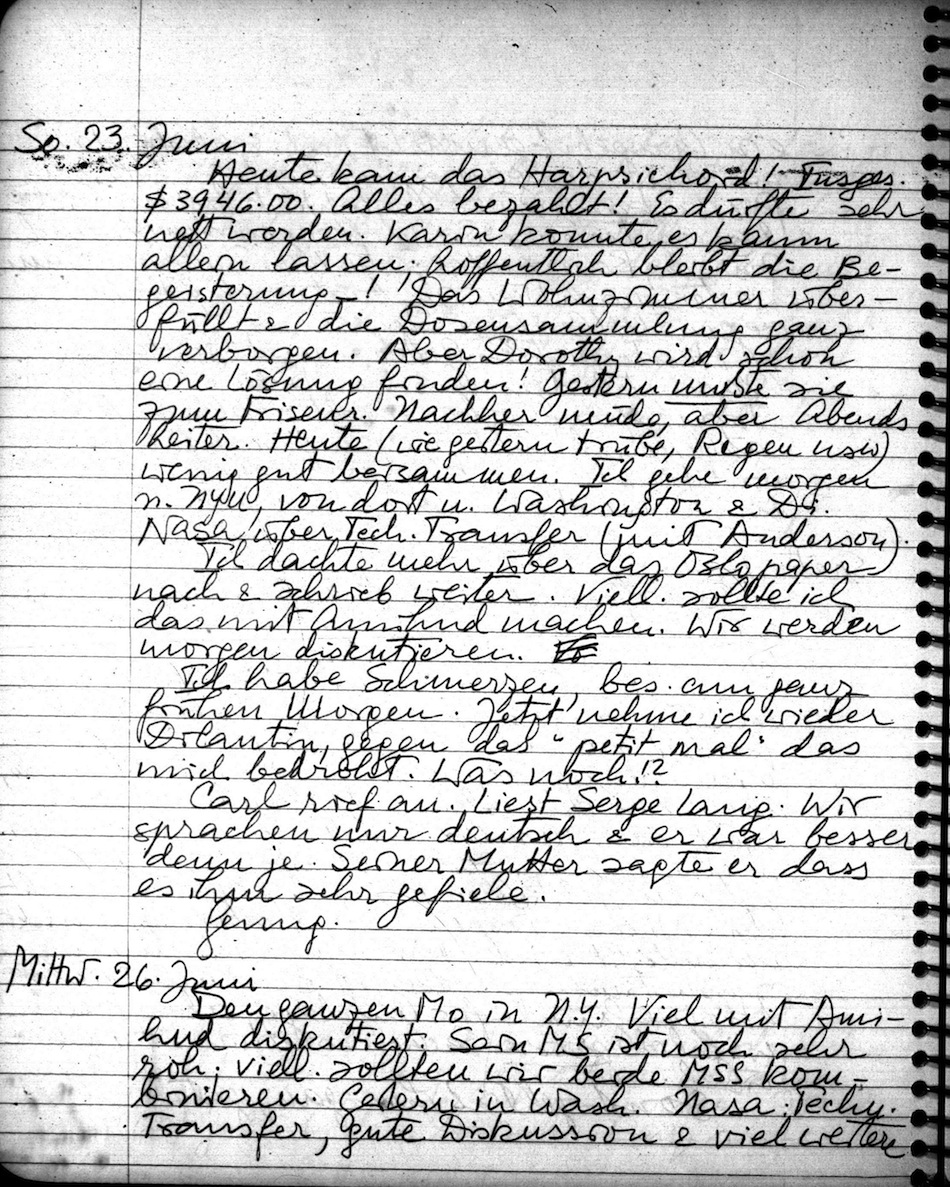 So. 23. Juni
Heute kam das Harpsichord! Insges.
$3946.00. Alles bezahlt! Es dürfte sehr
nett werden. Karin konnte es kaum
allein lassen; hoffentlich bleibt die Be-
geisterung –! Das Wohnzimmer über-
füllt & die Dosensammlung ganz
verborgen. Aber Dorothy wird schon
eine Lösung finden! Gestern mußte sie
zum Friseur. Nachher müde, aber Abends
heiter. Heute (wie gestern trübe, Regen usw)
wenig gut beisammen. Ich gehe morgen
n. NYU, von dort n. Washington & Di.
Nasa über Tech. Transfer (mit Anderson).
Ich dachte mehr über das Oslo paper
nach & schrieb weiter. Viell. sollte ich
das mit Amihud machen. Wir werden
morgen diskutieren.
Ich habe Schmerzen, bes. am ganz
frühen Morgen. Jetzt nehme ich wieder
Dilantin, gegen das "petit mal" das
mich bedroht. Was noch!?
Carl rief an. Liest Serge Lang. Wir
sprachen nur deutsch & er war besser
denn je. Seiner Mutter sagte er dass
es ihm sehr gefiele.
Genug.
Mittw. 26. Juni
Den ganzen Mo in N.Y. Viel mit Ami-
hud diskutiert. Sein MS ist noch sehr
roh. Viell. sollten wir beide MSS kom-
binieren. Gestern in Wash. Nasa: Techn.
Transfer, gute Diskussion & viel weitere